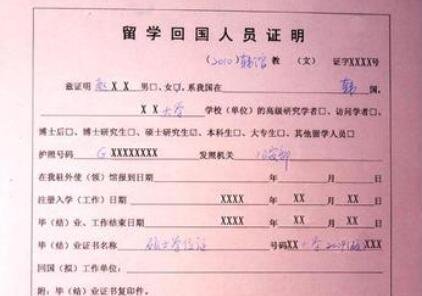 留学回国人员证明
（2010）韩馆 教 （文） 证字XXXX号
兹证明 赵 X X 男□、女□，系我国在 韩 国，
X X 大学 学校（单位）的高级研究学者□、访问学者□、
博士后□、博士研究生□、硕士研究生☑、本科生□、大专生□、其他留学人员□
护照号码 G XXXXXXXX 发照机关 公安部
在我驻外使（领）馆报到日期 年 月 日
注册入学（工作）日期 XXXX 年 XX 月 XX 日
毕（结）业、工作结束日期 XXXX 年 XX 月 XX 日
毕（结）业证书名称 硕士学位证 号码XX 大学 2009
回国（拟）工作单位：
附：毕（结）业证书复印件。